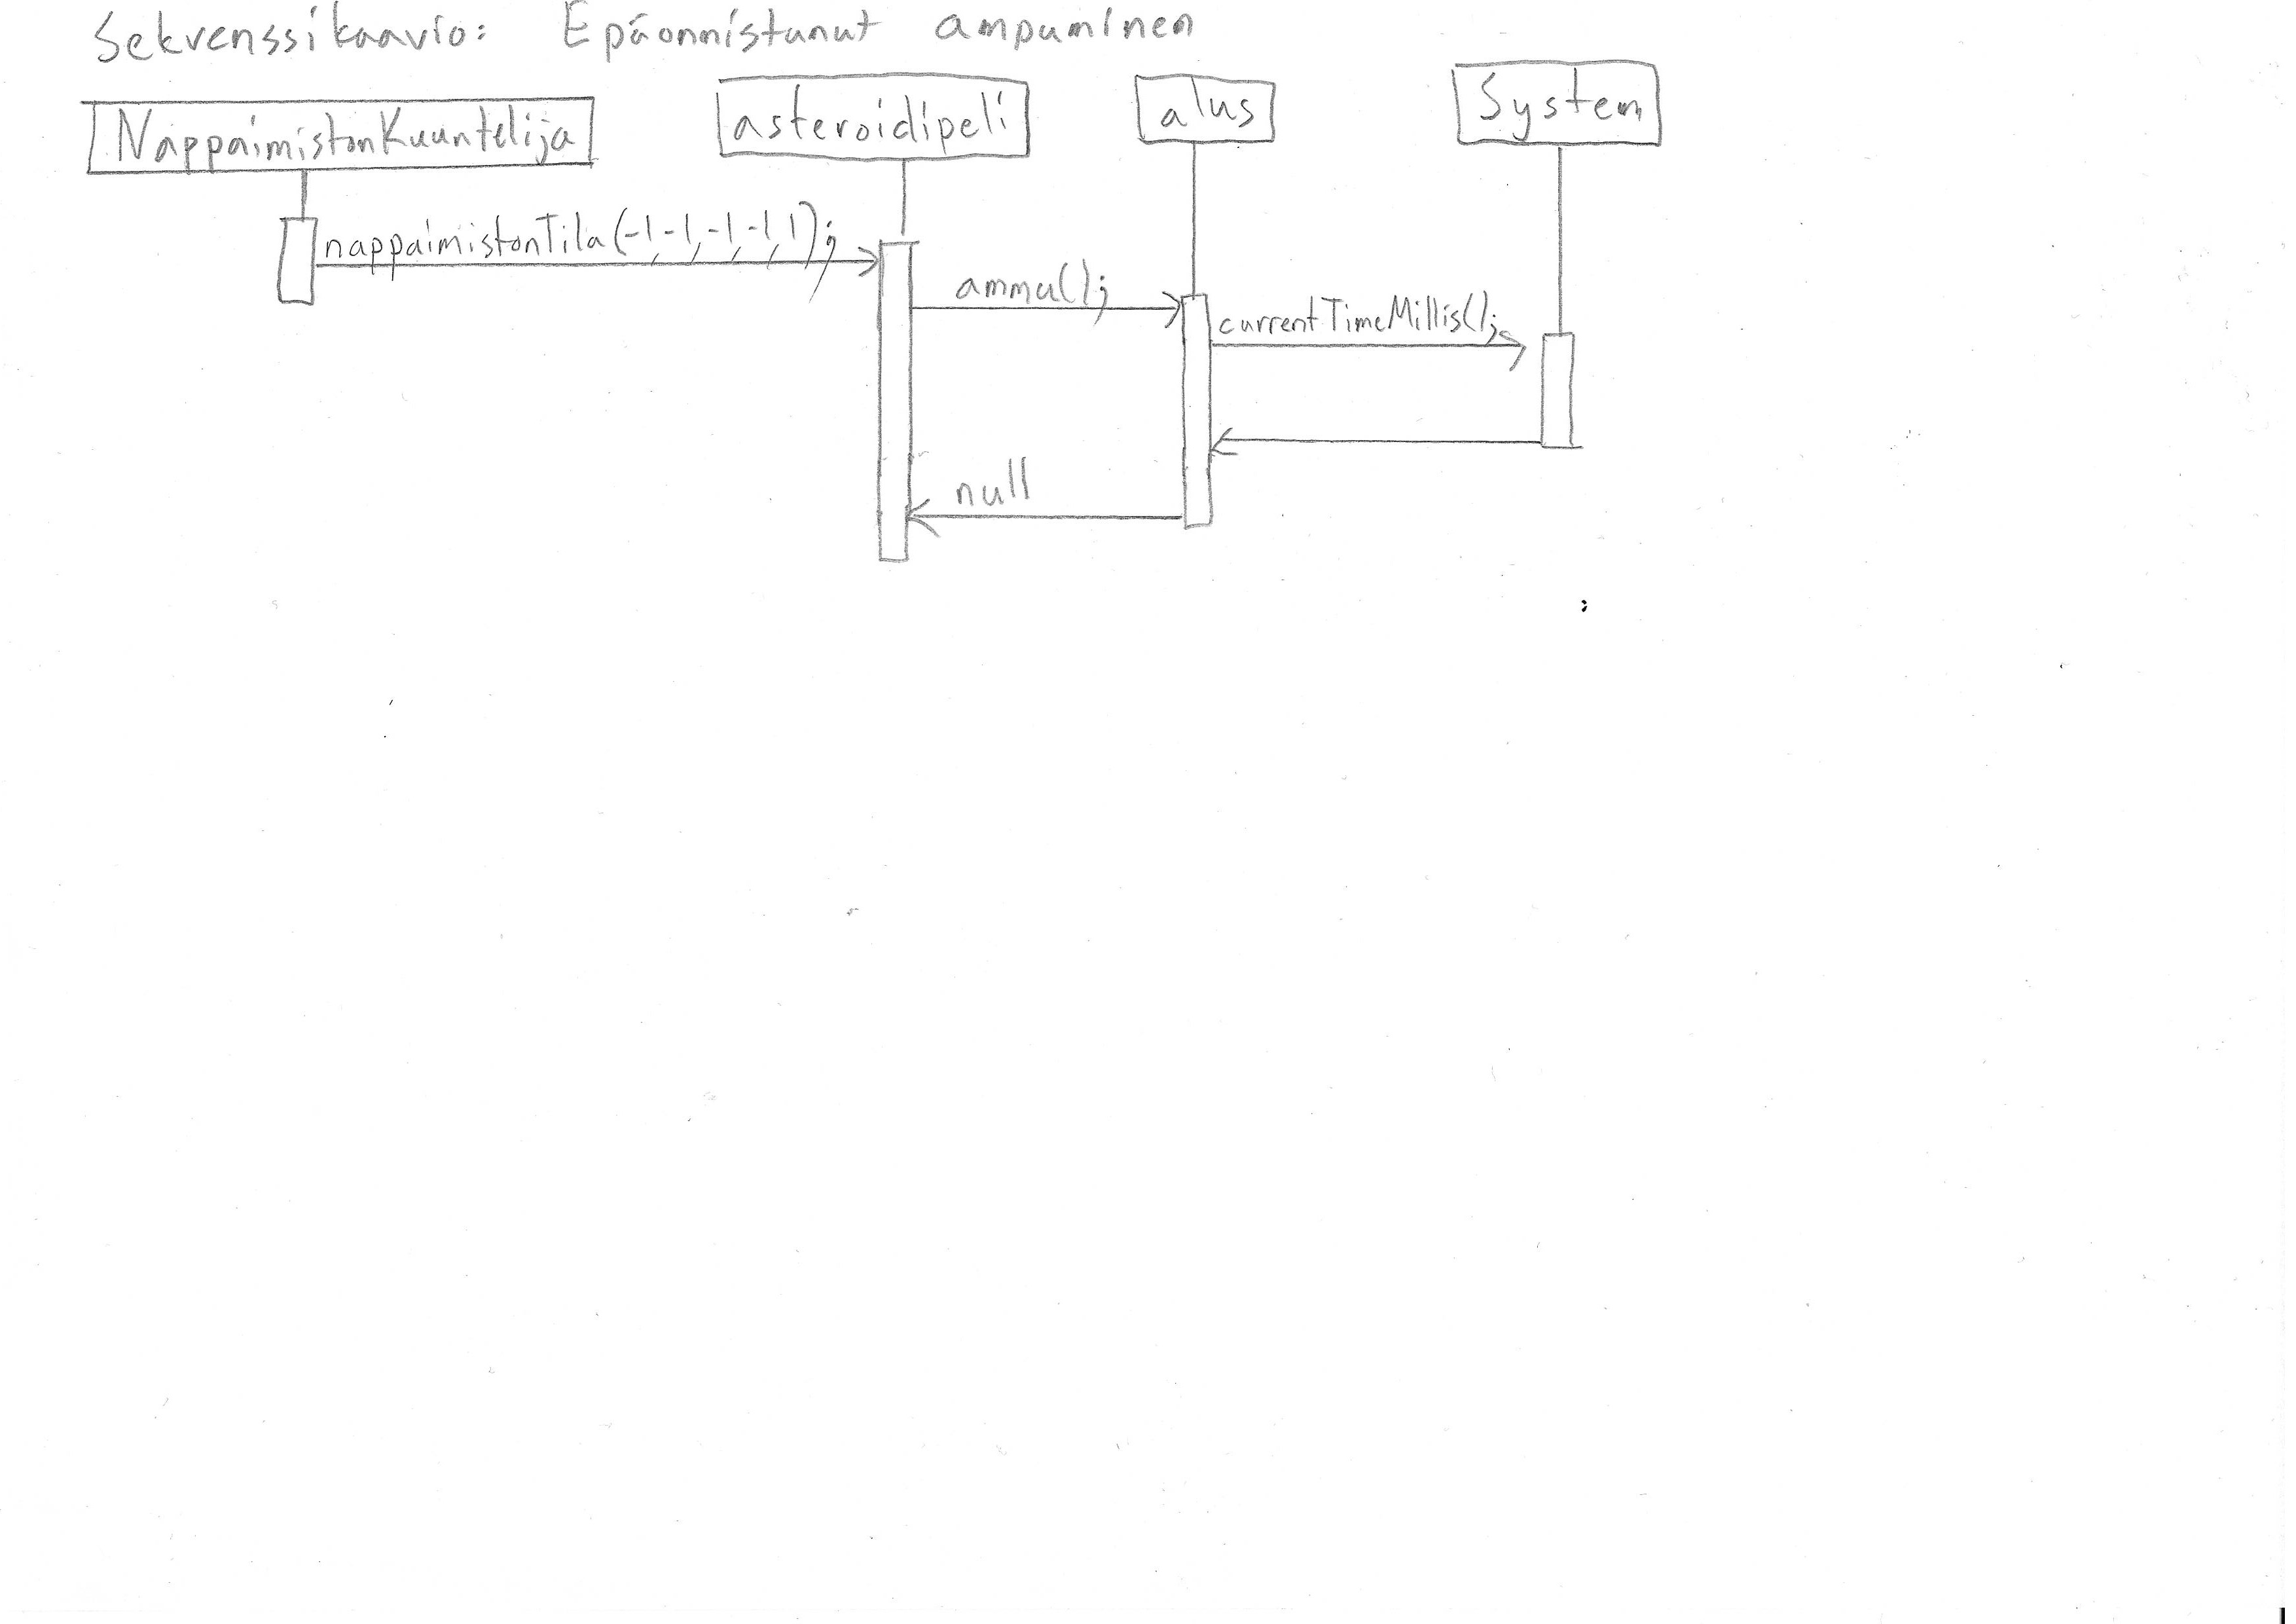 Sekvenssikaavio: Epäonnistunut ampuminen
NappaimistonKuuntelija
asteroidipeli
alus
System
nappaimistonTila(-1,-1,-1,-1,1);
ammu();
currentTimeMillis();
null